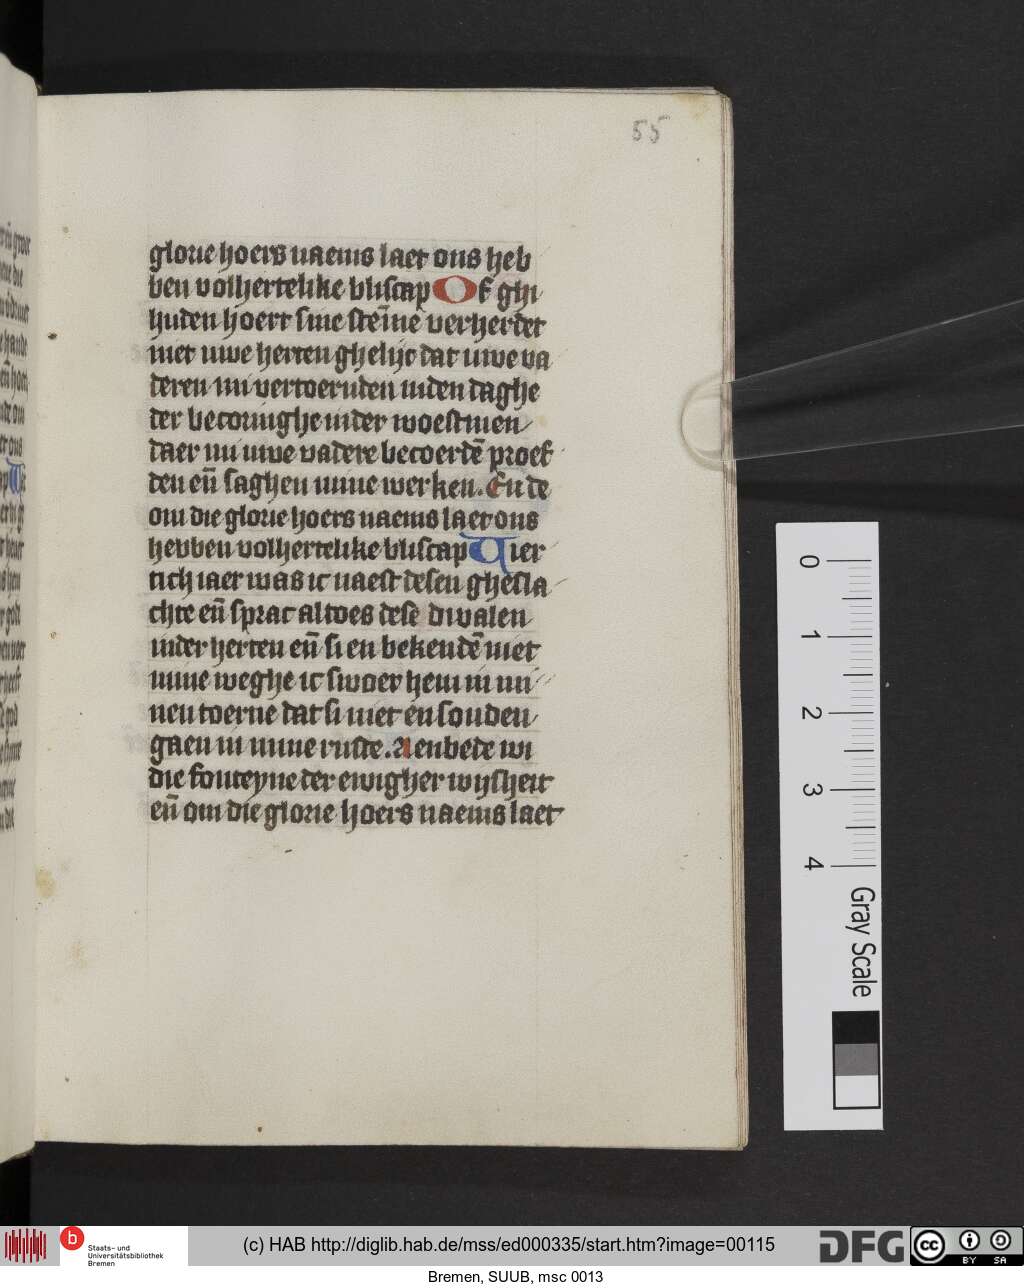 55
glorie hoers naems laet ons heb
ben volhertelike bliscap Of ghi
huden hoert sine stem̄e verherdet
niet uwe herten ghelijc dat uwe va
deren mi vertoernden inden daghe
der becoringhe inder woestinen
daer mi uwe vadere becoerdē proef
den eñ saghen mine werken. Ende
om die glorie hoers naems laet ons
hebben volhertelike bliscap Vier
tich iaer was ic naest desen ghesla
chte eñ sprac altoes dese dwalen
inder herten eñ si en bekendē niet
mine weghe ic swoer hem in mi
nen toerne dat si niet en souden
gaen in mine ruste. Aenbede wi
die fonteyne der ewigher wijsheit
eñ om die glorie hoers naems laet
0
1
2
3
4
Gray Scale
b
Staats- und
Universitätsbibliothek
Bremen
(c) HAB http://diglib.hab.de/mss/ed000335/start.htm?image=00115
DFG
cc
BY SA
Bremen, SUUB, msc 0013